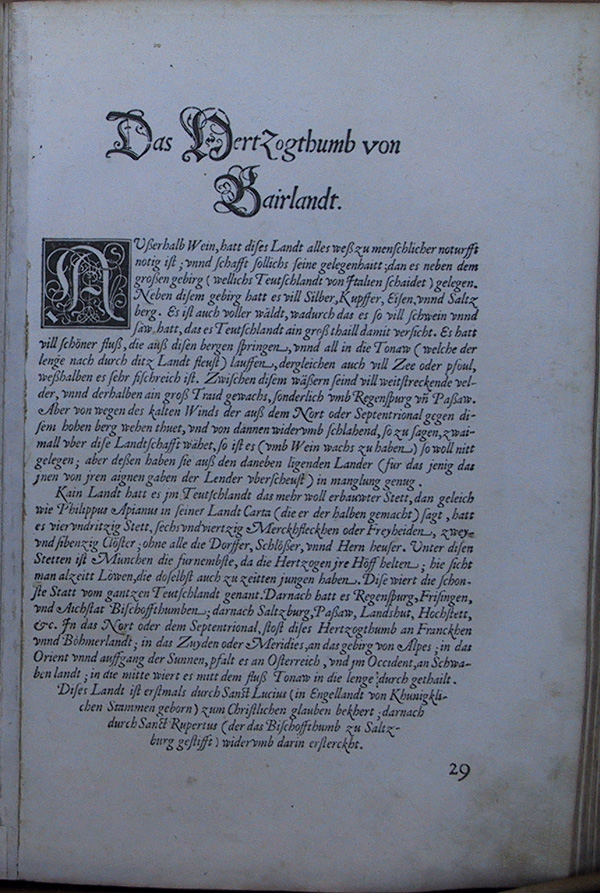 Das Hertzogthumb von
Bairlandt.
AUßerhalb Wein, hatt dises Landt alles weß zu menschlicher noturfft
notig ist; vnnd schafft sollichs seine gelegenhaitt; dan es neben dem
großen gebirg (wellichs Teutschlandt von Italien schaidet) gelegen.
Neben disem gebirg hatt es vill Silber, Kupffer, Eisen, vnnd Saltz
berg. Es ist auch voller wäldt, wadurch das es so vill schwein vnnd
säw, hatt, das es Teutschlandt ain groß thaill damit versicht. Es hatt
vill schöner fluß, die auß disen bergen springen, vnnd all in die Tonaw (welche der
lenge nach durch ditz Landt fleust) lauffen, dergleichen auch vill Zee oder pfoul,
weßhalben es sehr fischreich ist. Zwischen disem wäßern seind vill weitstreckende vel-
der, vnnd derhalben ain groß Traid gewachs, sonderlich vmb Regenspurg vñ Paßaw.
Aber von wegen des kalten Winds der auß dem Nort oder Septentrional gegen di-
sem hohen berg wehen thuet, vnd von dannen widervmb schlahend, so zu sagen, zwai-
mall vber dise Landtschafft wähet, so ist es (vmb Wein wachs zu haben) so woll nitt
gelegen; aber deßen haben sie auß den daneben ligenden Lander (fur das jenig das
jnen von jren aignen gaben der Lender vberscheust) in manglung genug.
Kain Landt hatt es jm Teutschlandt das mehr woll erbauwter Stett, dan geleich
wie Philippus Apianus in seiner Landt Carta (die er der halben gemacht) sagt, hatt
es viervndritzig Stett, sechsvndvertzig Merckhfleckhen oder Freyheiden, zwey-
vnd sibenzig Clöster; ohne alle die Dorffer, Schlößer, vnnd Hern heuser. Unter disen
Stetten ist Munchen die furnembste, da die Hertzogen jre Höff helten; hie sicht
man alzeitt Löwen, die doselbst auch zu zeitten jungen haben. Dise wiert die schon-
ste Statt vom gantzen Teutschlandt genant. Darnach hatt es Regenspurg, Frisingen,
vnd Aichstat Bischoffthumben; darnach Saltzburg, Paßaw, Landshut, Hochstett,
&c. In das Nort oder dem Septentrional, stost dises Hertzogthumb an Franckhen
vnnd Böhmerlandt; in das Zuyden oder Meridies, an das gebirg von Alpes; in das
Orient vnnd auffgang der Sunnen, pfalt es an Osterreich, vnd jm Occident, an Schwa-
ben landt; in die mitte wiert es mitt dem fluß Tonaw in die lenge durch gethailt.
Dises Landt ist erstmals durch Sanct Lucius (in Engellandt von Khunigkli-
chen Stammen geborn) zum Christlichen glauben bekhert; darnach
durch Sanct Rupertus (der das Bischoffthumb zu Saltz-
burg gestifft) widervmb darin ersterckht.
29